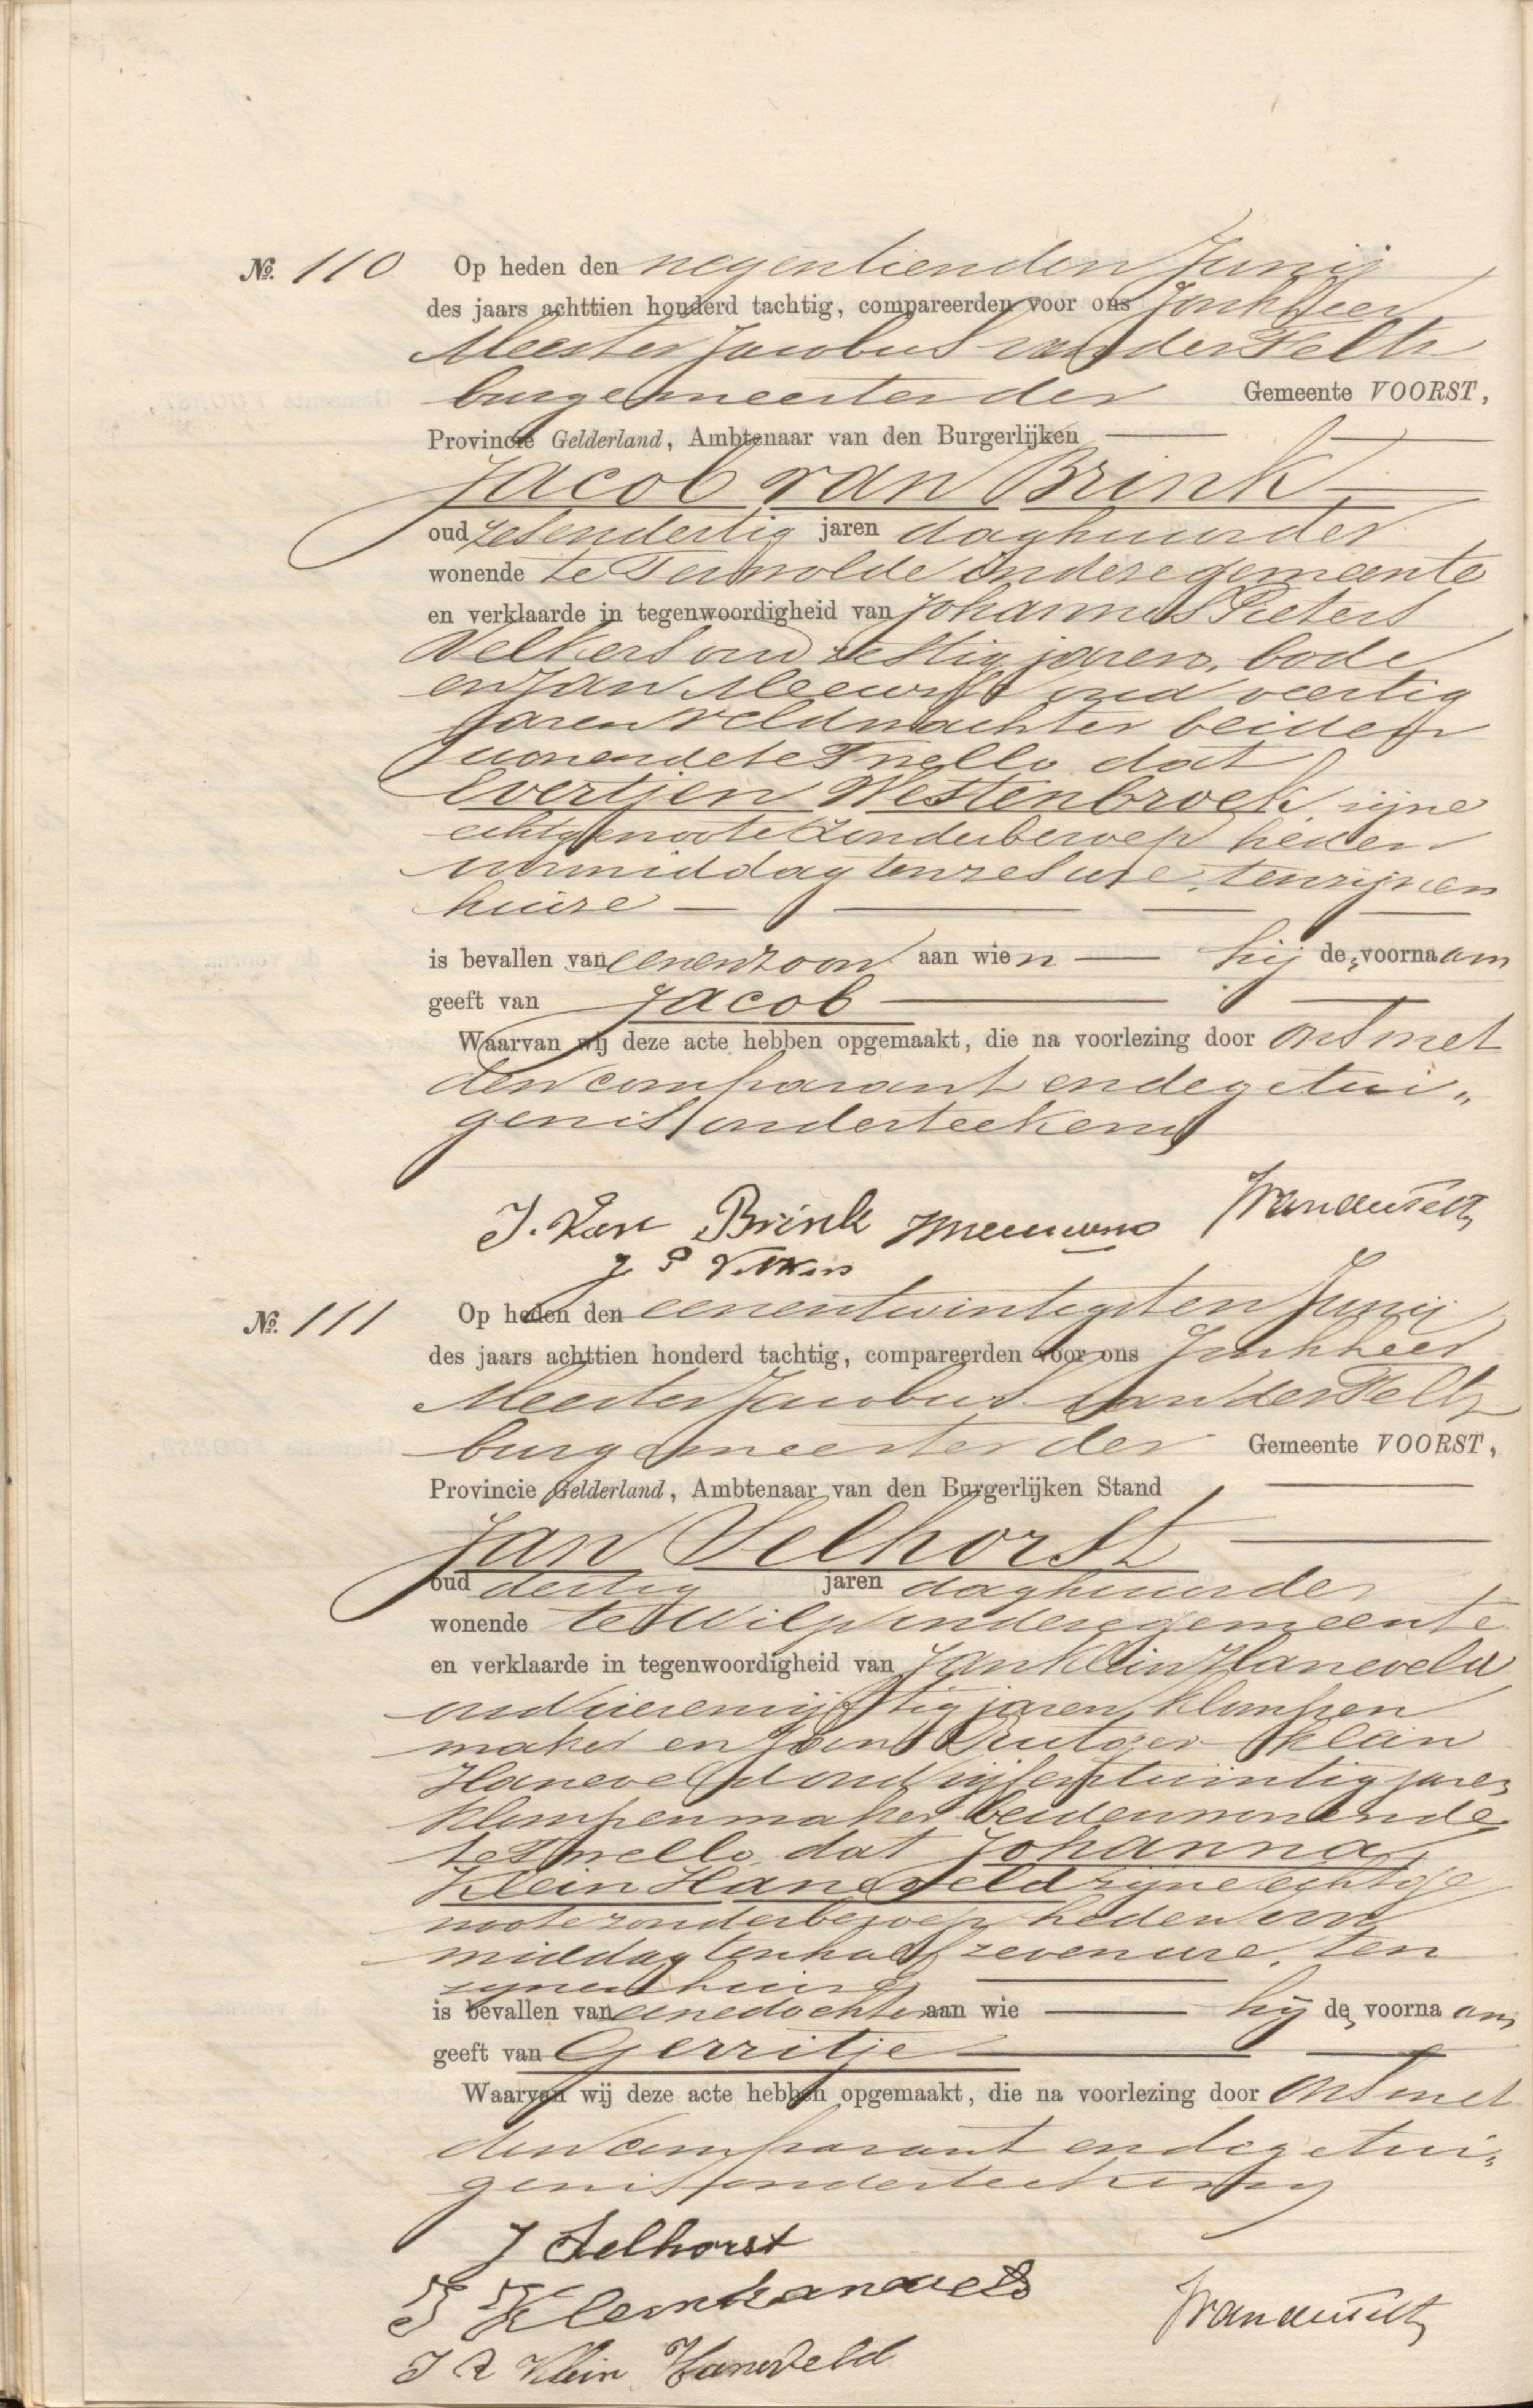 №. 110 Op heden den negentienden Junij
des jaars achttien honderd tachtig, compareerden voor ons Jonkheer
Meester Jacobus van der Feltz
burgemeester der Gemeente VOORST,
Provincie Gelderland, Ambtenaar van den Burgerlijken
Jacob van Brink
oud zesendertig jaren daghuurder
wonende te Terwolde in deze gemeente
en verklaarde in tegenwoordigheid van Johannes Pieters
Velkers oud zestig jaren, bode
en Jan Meeuwsen oud veertig
jaren veldwachter beiden
wonende te Twello dat
Evertjen Westenbroek zijne
echtgenoote zonder beroep heden
voormiddag ten zes ure, ten zijnen
huize
is bevallen van eenen zoon aan wien hij de voornaam
geeft van Jacob
Waarvan wij deze acte hebben opgemaakt, die na voorlezing door ons met
den comparant en de getui„
genis onderteekend
J. Van Brink JMeeuwsen JvanderFeltz
J P Velkers
№. 111 Op heden den eenentwintigsten Junij
des jaars achttien honderd tachtig, compareerden voor ons Jonkheer
Meester Jacobus van der Feltz
burgemeester der Gemeente VOORST,
Provincie Gelderland, Ambtenaar van den Burgerlijken Stand
Jan Selhorst
oud dertig jaren daghuurder
wonende te Wilp in deze gemeente
en verklaarde in tegenwoordigheid van Jan Klein Haneveld
oud vierenvijftig jaren, klompen
maker en Jan Rutger Klein
Haneveld oud vijfentwintig jaren
klompenmaker beiden wonende
te Twello, dat Johanna
Klein Haneveld zijne echtge
noote zonder beroep heden voor
middag ten half zeven ure, ten
zijnen huize
is bevallen van eene dochter aan wie hij de voornaam
geeft van Gerritje
Waarvan wij deze acte hebben opgemaakt, die na voorlezing door ons met
den comparant en de getui„
genis onderteekend
J Selhorst
J Klein haneveld JvanderFeltz
J R Klein Haneveld